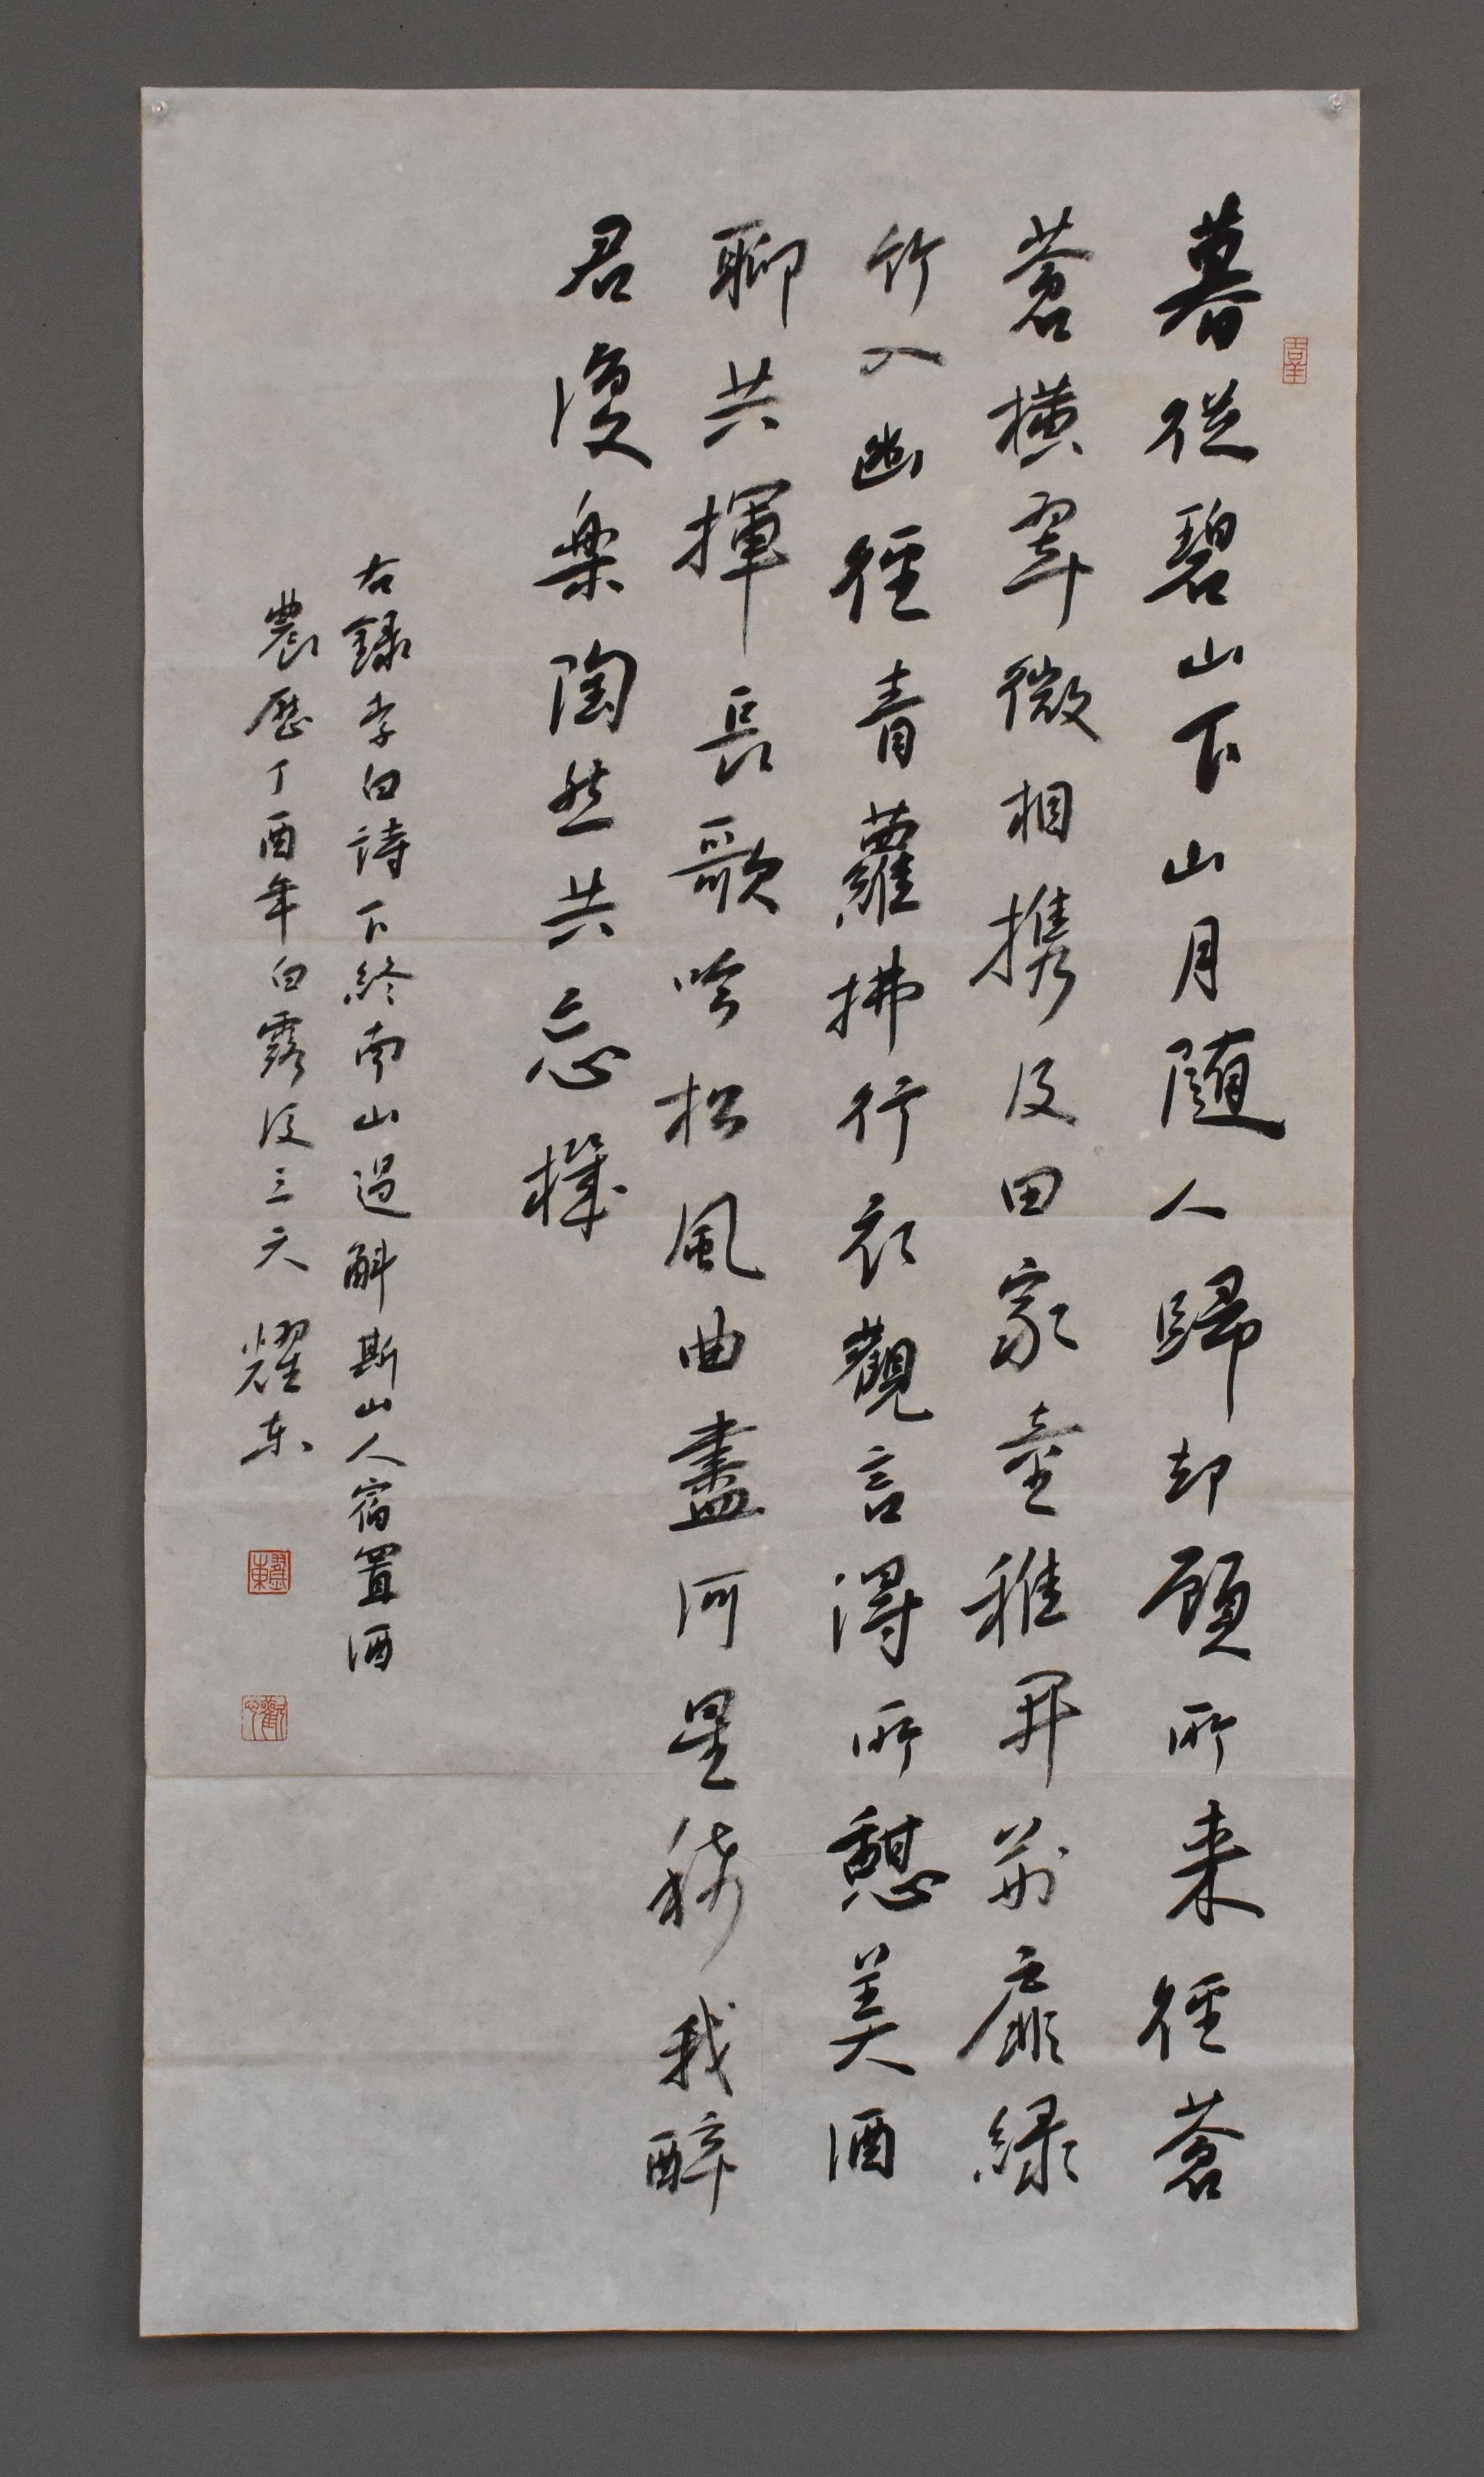 暮從碧山下山月随人歸却顧所来徑蒼
蒼橫翠微相携及田家童稚開荆扉緑
竹入幽徑青蘿拂行衣觀言得所憩美酒
聊共揮長歌吟松風曲盡河星稀我醉
君復樂陶然共忘機
右録李白詩下終南山過斛斯山人宿置酒
農歷丁酉年白露後三天耀东